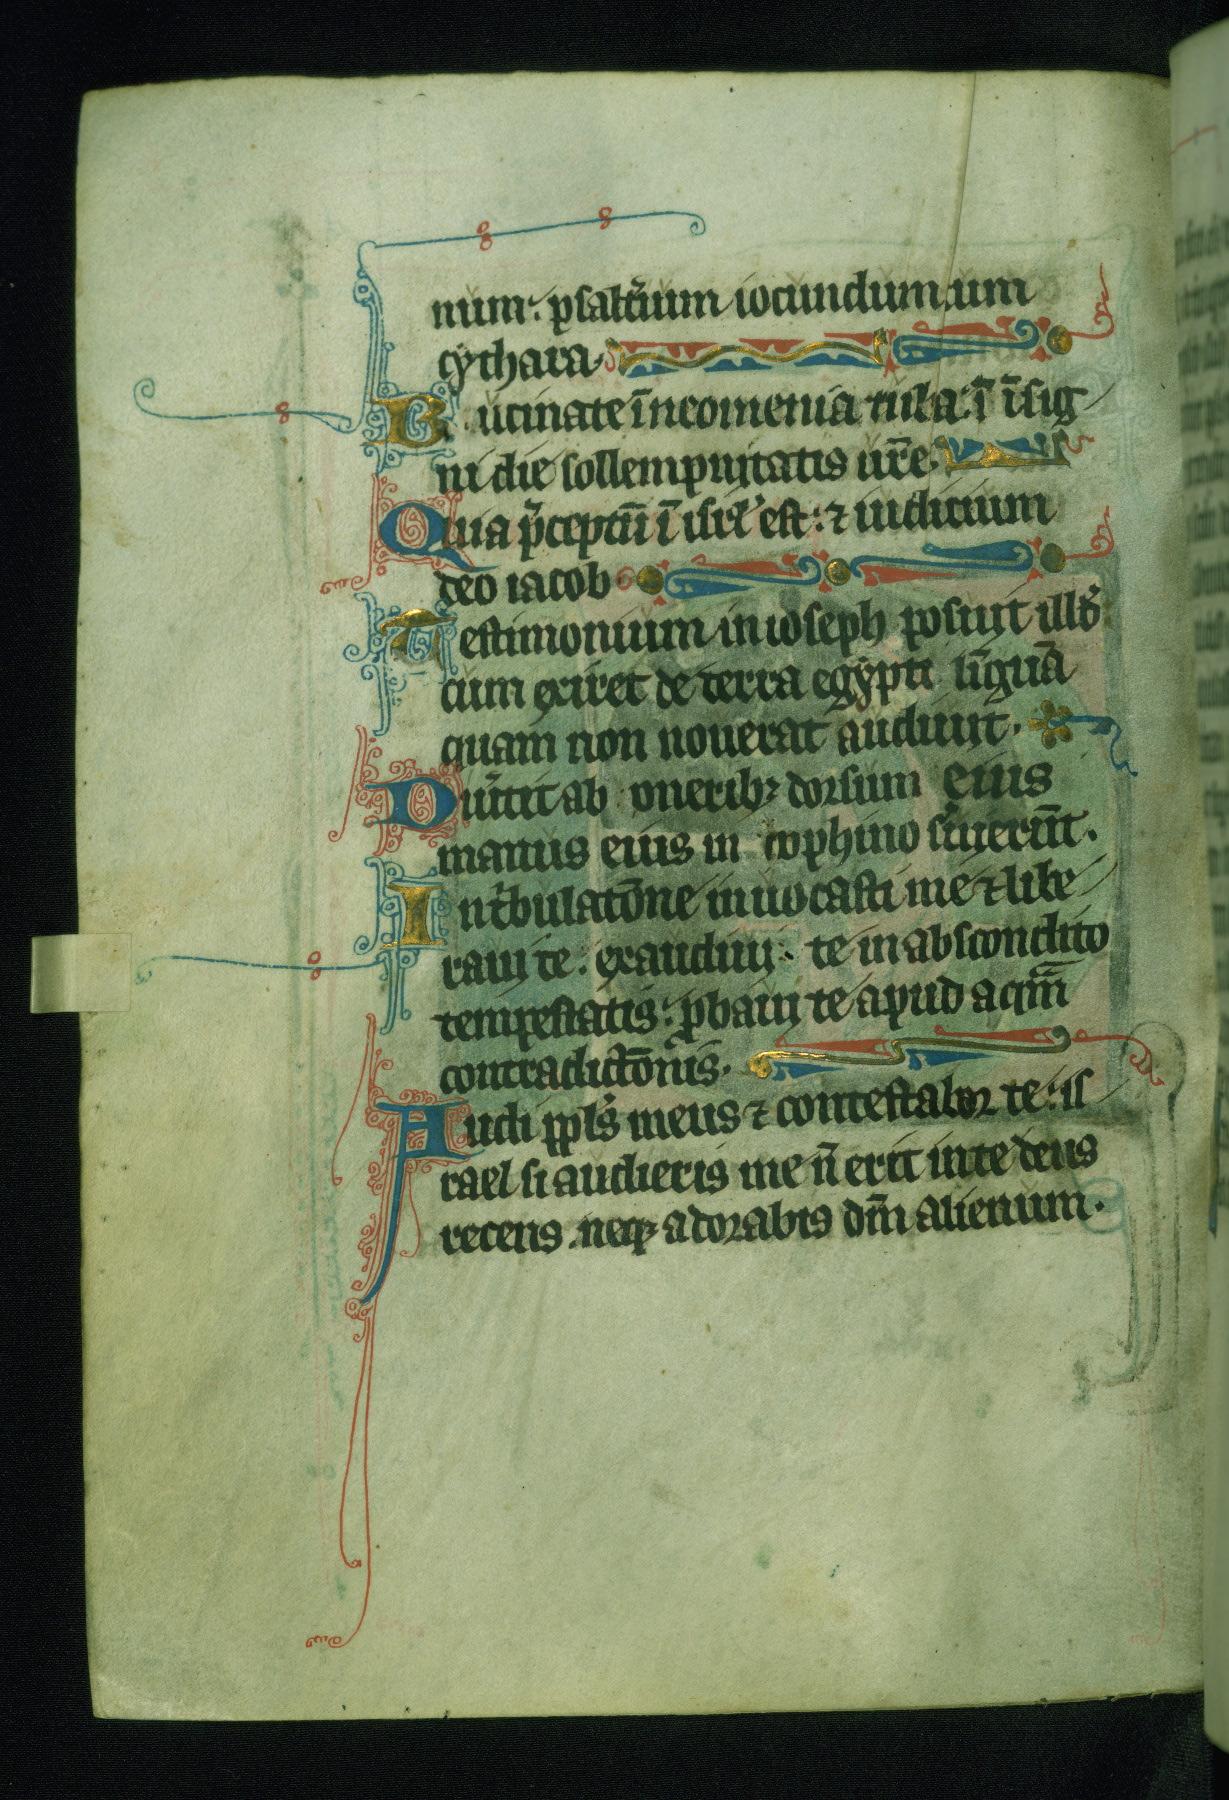 num: p̱salt̉ium iocundum cum
cythara.
Bucinate ī neomenia tuba: ī īsig
ni die sollempnitatis ur̄e.
Quia p̉ceptū ī isrl̉ est: ⁊ iudicium
deo iacob.
Testimonium in ioseph posuit illd̉
cum exiret de terra egypti linguā
quam non nouerat audiuit.
Diủtit ab oneribꝫ dorsum eius
manus eius in cophino s̉uierūt.
In t̉bulatōne inuocasti me ⁊ libe
raui te: exaudiui te in abscondito
tempestatis: ꝓbaui te apud aqm̄
contradictōnis.
Audi ppl̉s meus ⁊ contestabor te: is
rael si audieris me n̄ erit in te deus
recens. neqꝫ adorabis dm̄ alienum.